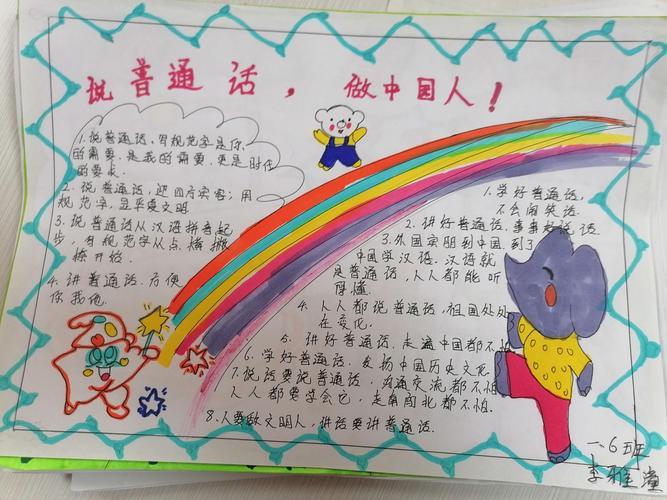 说普通话，做中国人！
1.说普通话,写规范字是你
的需要.是我的需要.更是时代
的要求.
2.说普通话,迎四方宾客;用
规范字,显华夏文明.
3.说普通话从汉语拼音起
步,写规范字从点横撇
捺开始.
4.讲普通话.方便
你我他.
1.学好普通话,
不会闹笑话.
2.讲好普通话.事事
话.
3.外国宾朋到中国.到了
中国学汉语.汉语就
是普通话,人人都能听
得懂.
4.人人都说普通话,祖国处处
在变化.
5.讲好普通话.走遍中国都不怕
6.学好普通话.发扬中国历史文化
7.说话要说普通话,沟通交流都不怕
人人都要学会它,走南闯北都不怕.
8.人要做文明人,讲话要讲普通话.
一.6班
李雅潼